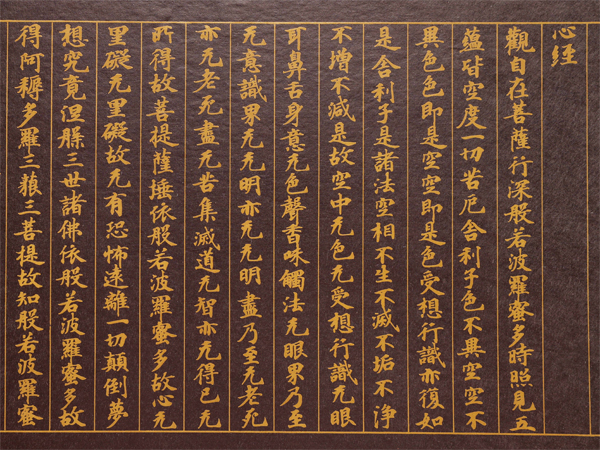 心経
觀自在菩薩行深般若波羅蜜多時照見五
蘊皆空度一切苦厄舍利子色不異空空不
異色色即是空空即是色受想行識亦復如
是舍利子是諸法空相不生不滅不垢不淨
不增不減是故空中无色无受想行識无眼
耳鼻舌身意无色聲香味觸法无眼界乃至
无意識界无无明亦无无明盡乃至无老死
亦无老死盡无苦集滅道无智亦无得已无
所得故菩提薩埵依般若波羅蜜多故心无
罣礙无罣礙故无有恐怖遠離一切顛倒夢
想究竟涅槃三世諸佛依般若波羅蜜多故
得阿耨多羅三藐三菩提故知般若波羅蜜